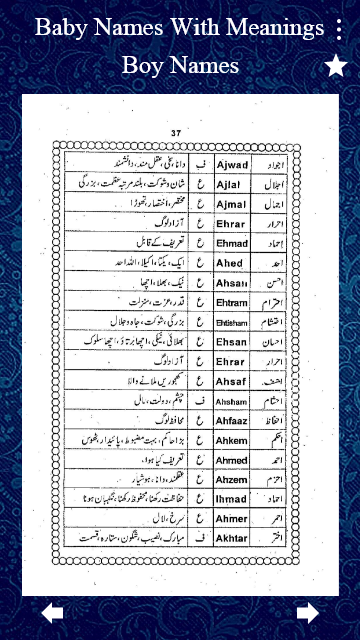 Baby Names With Meanings
Boy Names
37
اجواد Ajwad ف دانا، سخی، عقل مند، دانشمند
اجلال Ajlal ع شان و شوکت، بلند مرتبہ عظمت، بزرگی
اجمال Ajmal ع مختصر، اختصار، تھوڑا
احرار Ehrar ع آزاد لوگ
احماد Ehmad ع تعریف کے قابل
احد Ahed ع ایک، یکتا، اکیلا، اللہ احد
احسن Ahsan ع نیک، بھلا، اچھا
احترام Ehtram ع قدر، عزت، منزلت
احتشام Ehtisham ع بزرگی، شوکت، جاہ و جلال
احسان Ehsan ع بھلائی، نیکی، اچھا برتاؤ، اچھا سلوک
احرار Ehrar ع آزاد لوگ
Ahsaf ع کھجوریں ملانے والا
احشام Ahsham ف چشم، دولت، مال
احفاظ Ahfaaz ع محافظ لوگ
احکم Ahkem ع بڑا حاکم، بہت مضبوط، پائیدار، ٹھوس
احمد Ahmed ع تعریف کیا ہوا،
احزم Ahzem ع عقلمند، دانا، ہوشیار
احماد Ihmad ع حفاظت رکھنا، محفوظ رکھنا، نگہبان ہونا
احمر Ahmer ع سرخ، لال
اختر Akhtar ف مبارک، نصیب، شگون، ستارہ، قسمت